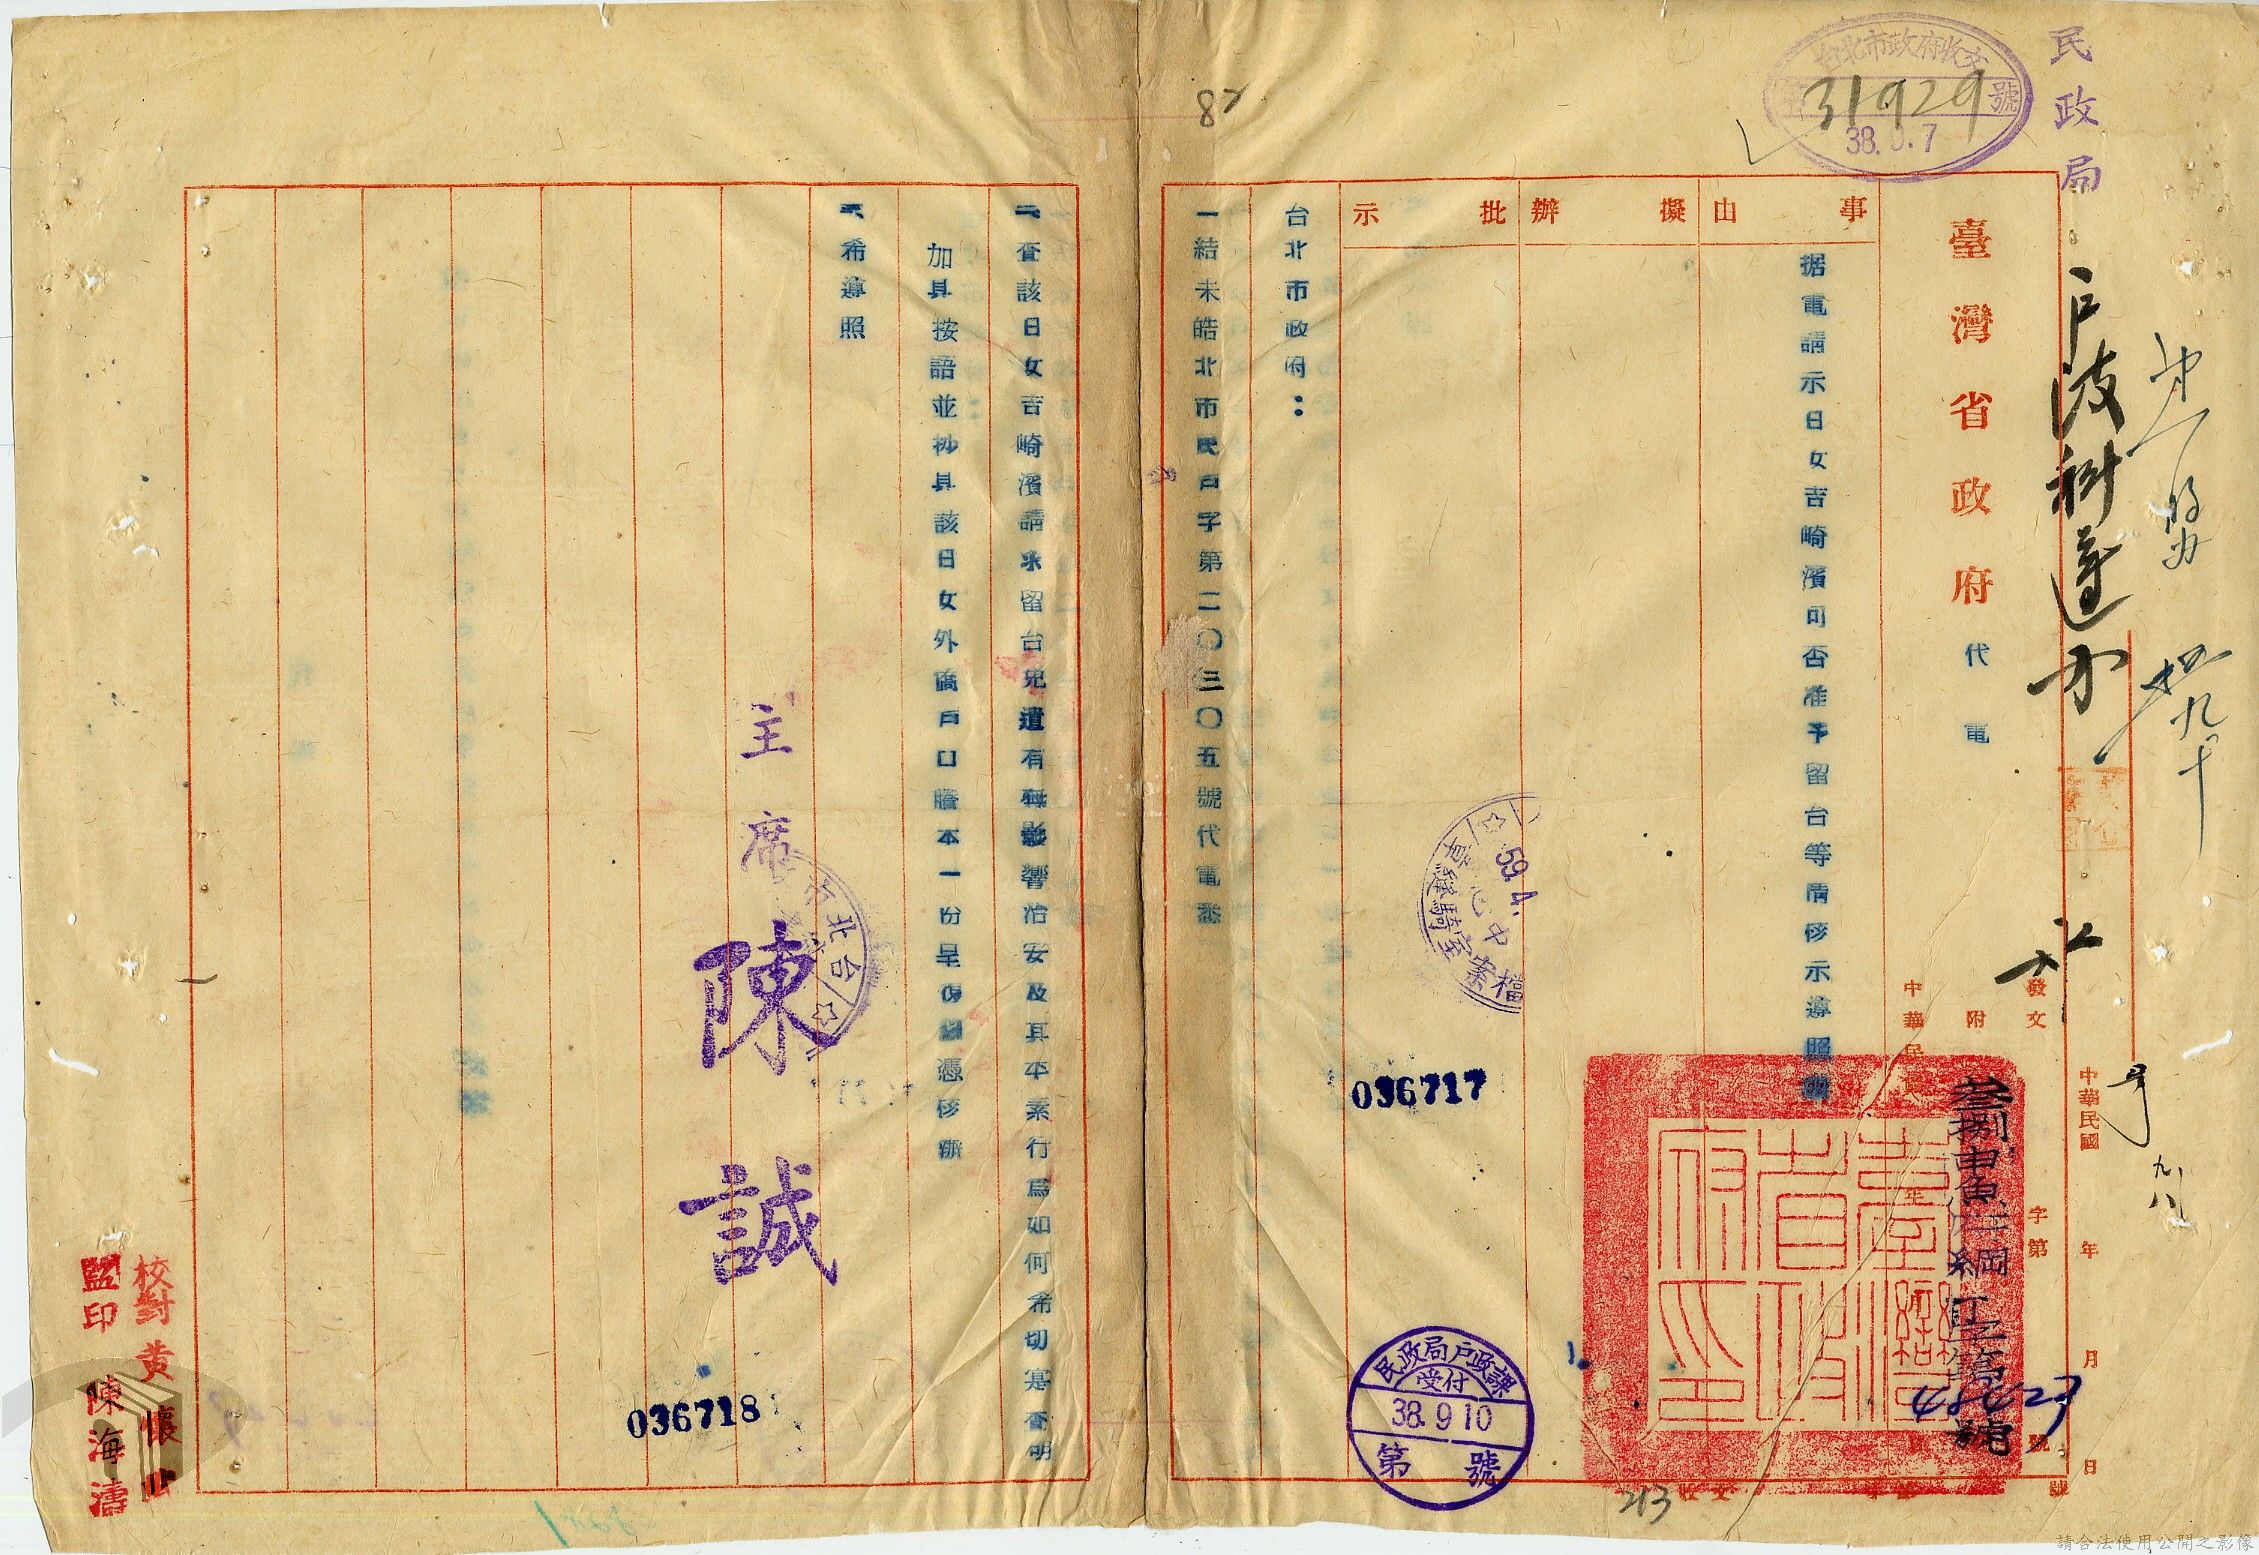 民政局
台北市政府收文
31929
號
38.9.7
臺灣省政府代電
事由
擬辦
批示
据電請示日女吉崎濱可否准予留台等情核示遵照
中華民國
年
月
日
發文
字第
號
附
叁捌申魚
綱
48427
號
台北市政府：
一結未皓北市民戶字第二〇三〇五號代電悉
二查該日女吉崎濱請求留台兒遺有無影響治安及其本素行為如何希切寔查明
加具按語並抄具該日女外僑戶口謄本一份呈復憑核辦
三希遵照
主席 陳誠
臺灣省政府印
民政局戶政課
受付
38.9.10
第 號
59.4.
檔案室
036717
036718
82
213
收文
校對 黃懷
監印 陳海濤
請合法使用公開之影像